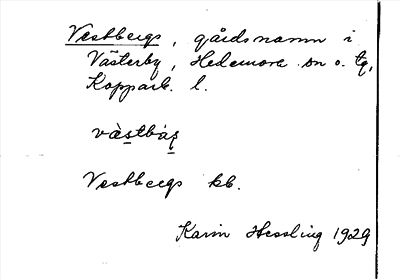 Vestbergs, gårdsnamn i
Västerby, Hedemora sn o. tg,
Kopparb. l.
vàstbàʂ
Vestbergs kb.
Karin Hessling 1929